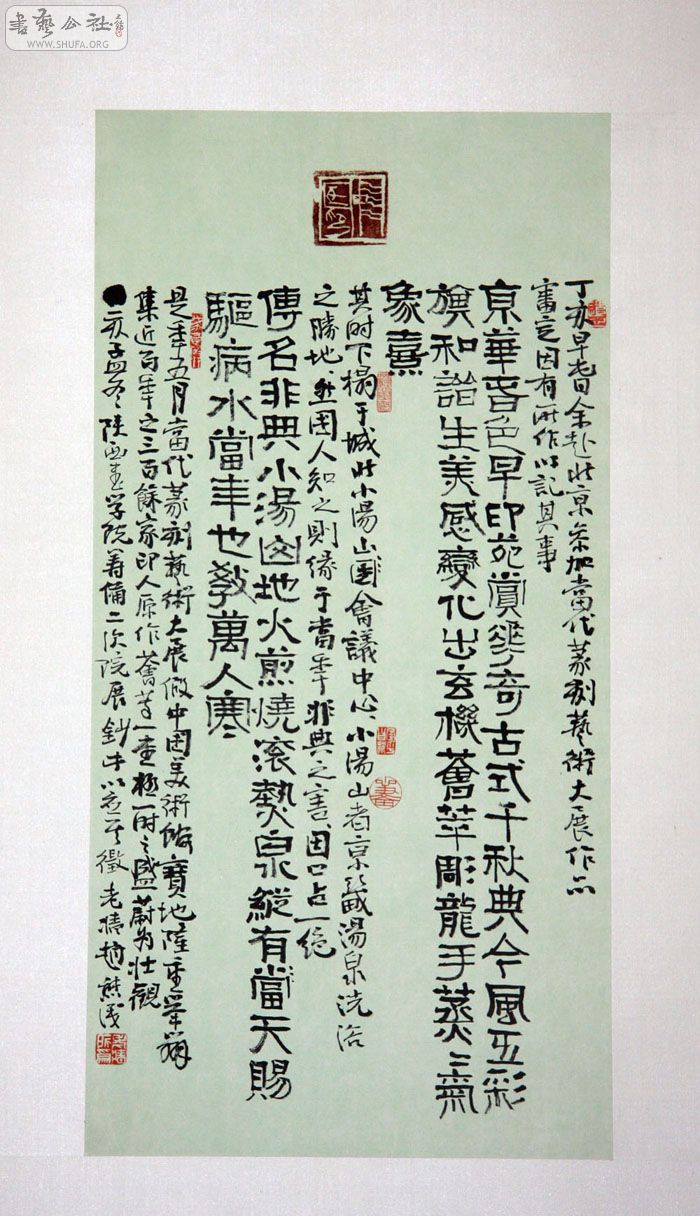 書藝公社
WWW.SHUFA.ORG
丁亥早春余赴北京参加當代篆刻藝術大展作品
審定因有所作以記其事
京華春色早印苑賞奇古式千秋典今風五彩
旗和諧生美感變化出玄機薈萃彫龍手蒸〻氣
象熹
其時下榻于城北小湯山國會議中心小湯山者京畿湯泉洗浴
之勝地然国人知之則緣于當年非典之害因口占一絶
傳名非典小湯山地火煎燒滚熱泉縱有當天賜
驅病水當年也教萬人寒
是年五月當代篆刻藝術大展假中国美術舘寶地隆重举辦
集近百年之三百餘家印人原作薈萃一堂極一時之盛蔚为壮觀
亥孟冬陕西書学院籌備二次院展鈔 徵老憤趙熊